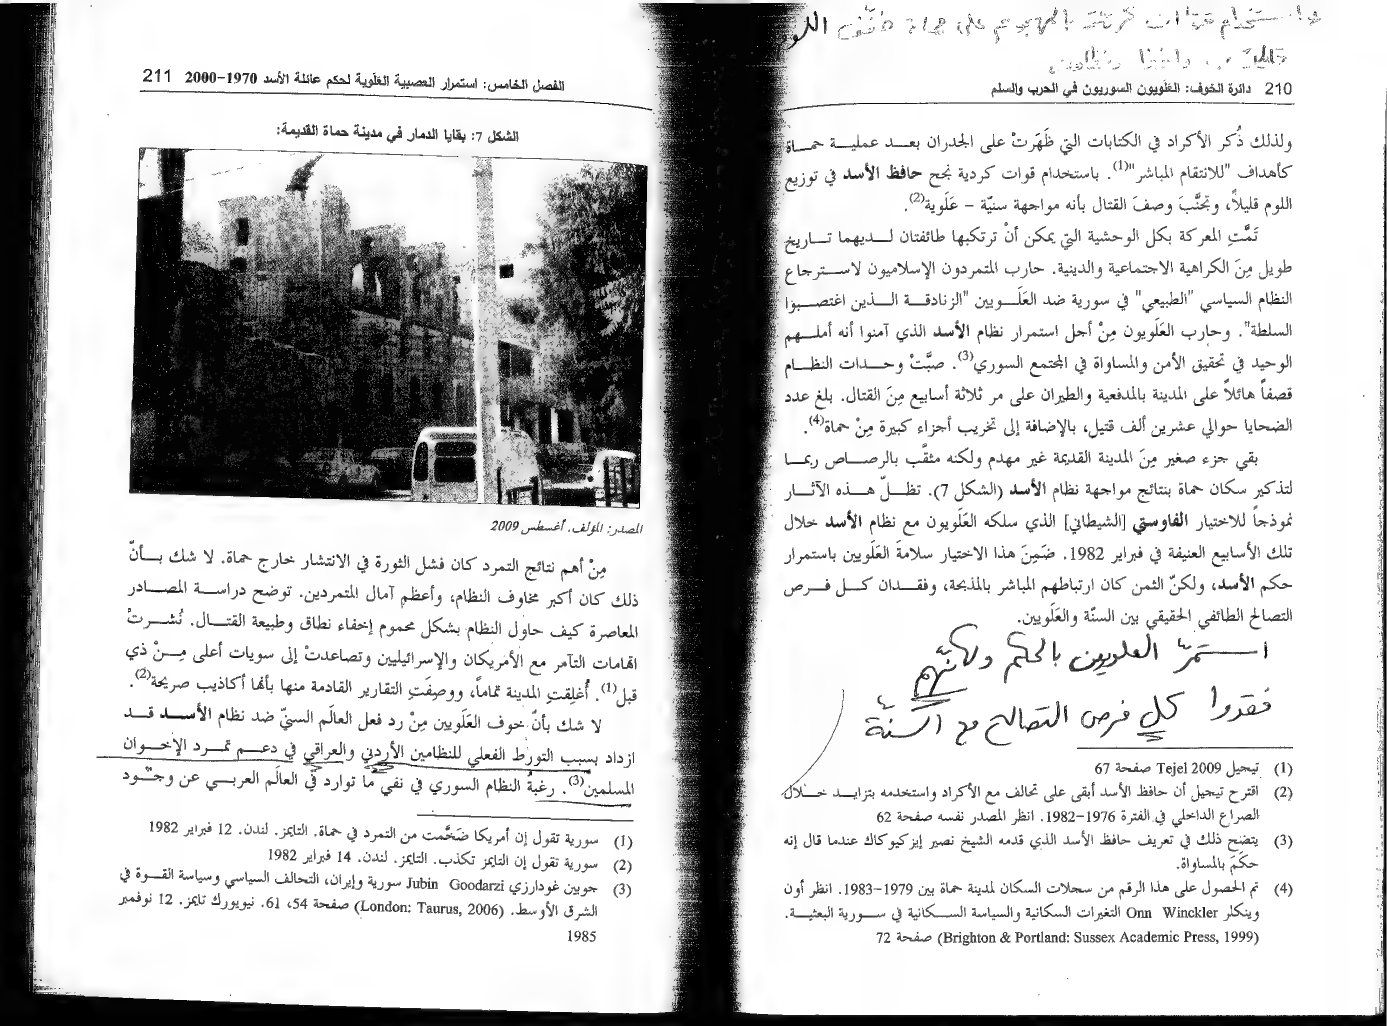 باستخدام قوات كردية بالهجوم على حماة خفّف اللوم
210 دائرة الخوف: العَلَويون السوريون في الحرب والسلم
ولذلك ذُكر الأكراد في الكتابات التي ظَهَرتْ على الجدران بعــد عمليــة حمــاة
كأهداف "للانتقام المباشر"(1). باستخدام قوات كردية نجح حافظ الأسد في توزيع
اللوم قليلاً، وتجنَّبَ وصفَ القتال بأنه مواجهة سنيّة – عَلَوية(2).
تَمَّتِ المعركة بكل الوحشية التي يمكن أنْ ترتكبها طائفتان لــديهما تــاريخ
طويل مِنَ الكراهية الاجتماعية والدينية. حارب المتمردون الإسلاميون لاســترجاع
النظام السياسي "الطبيعي" في سورية ضد العَلَــويين "الزنادقــة الــذين اغتصــبوا
السلطة". وحارب العَلَويون مِنْ أجل استمرار نظام الأسد الذي آمنوا أنه أملــهم
الوحيد في تحقيق الأمن والمساواة في المجتمع السوري(3). صبَّتْ وحــدات النظــام
قصفاً هائلاً على المدينة بالمدفعية والطيران على مر ثلاثة أسابيع مِنَ القتال. بلغ عدد
الضحايا حوالي عشرين ألف قتيل، بالإضافة إلى تخريب أجزاء كبيرة مِنْ حماة(4).
بقي جزء صغير مِنَ المدينة القديمة غير مهدم ولكنه مثقَّب بالرصــاص ربمــا
لتذكير سكان حماة بنتائج مواجهة نظام الأسد (الشكل 7). تظــلّ هــذه الآثــار
نموذجاً للاختيار الفاوستي [الشيطاني] الذي سلكه العَلَويون مع نظام الأسد خلال
تلك الأسابيع العنيفة في فبراير 1982. ضَمِنَ هذا الاختيار سلامةَ العَلَويين باستمرار
حكم الأسد، ولكنّ الثمن كان ارتباطهم المباشر بالمذبحة، وفقــدان كــل فــرص
التصالح الطائفي الحقيقي بين السنّة والعَلَويين.
استمرّ العلويين بالحكم ولكنّهم
فقدوا كلّ فرص التصالح مع السنّة
(1) تيجيل Tejel 2009 صفحة 67
(2) اقترح تيجيل أن حافظ الأسد أبقى على تحالف مع الأكراد واستخدمه بتزايــد خــلال
الصراع الداخلي في الفترة 1976-1982. انظر المصدر نفسه صفحة 62
(3) يتضح ذلك في تعريف حافظ الأسد الذي قدمه الشيخ نصير إيزكيوكاك عندما قال إنه
حكَمَ بالمساواة.
(4) تم الحصول على هذا الرقم من سجلات السكان لمدينة حماة بين 1979-1983. انظر أون
وينكلر Onn Winckler التغيرات السكانية والسياسة السـكانية في سـورية البعثيـة.
(Brighton & Portland: Sussex Academic Press, 1999) صفحة 72
الفصل الخامس: استمرار العصبية العَلَوية لحكم عائلة الأسد 1970-2000 211
الشكل 7: بقايا الدمار في مدينة حماة القديمة:
المصدر: المؤلف. أغسطس 2009
مِنْ أهم نتائج التمرد كان فشل الثورة في الانتشار خارج حماة. لا شك بــأنّ
ذلك كان أكبر مخاوف النظام، وأعظم آمال المتمردين. توضح دراســة المصــادر
المعاصرة كيف حاول النظام بشكل محموم إخفاء نطاق وطبيعة القتــال. نُشــرتْ
اتهامات التآمر مع الأمريكان والإسرائيليين وتصاعدتْ إلى سويات أعلى مِــنْ ذي
قبل(1). أُغلِقتِ المدينة تماماً، ووصِفَتِ التقارير القادمة منها بأنها أكاذيب صريحة(2).
لا شك بأنّ خوف العَلَويين مِنْ رد فعل العالَم السنيّ ضد نظام الأســد قــد
ازداد بسبب التورّط الفعلي للنظامين الأردني والعراقي في دعــم تمــرد الإخــوان
المسلمين(3). رغبةُ النظام السوري في نفي ما توارد في العالَم العربــي عن وجــود
(1) سورية تقول إن أمريكا ضَخَّمت من التمرد في حماة. التايمز. لندن. 12 فبراير 1982
(2) سورية تقول إن التايمز تكذب. التايمز. لندن. 14 فبراير 1982
(3) جوبين غودارزي Jubin Goodarzi سورية وإيران، التحالف السياسي وسياسة القــوة في
الشرق الأوسط. (London: Taurus, 2006) صفحة 54، 61. نيويورك تايمز. 12 نوفمبر
1985